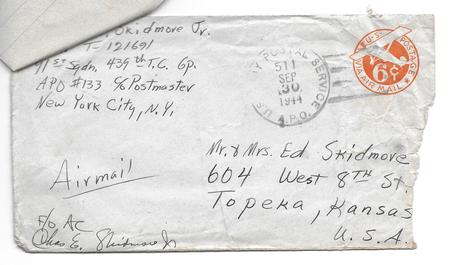 Skidmore Jr.
T-121691
91st Sqdn. 439th T.C. Gp.
APO #133 c/o Postmaster
New York City, N.Y.
Airmail
F/O AC
Chas E. Skidmore Jr
U.S. POSTAL SERVICE
511
SEP
30
1944
A.P.O.
U.S. POSTAGE
6¢
VIA AIR MAIL
Mr. & Mrs. Ed Skidmore
604 West 8TH St.
Topeka, Kansas
U.S.A.